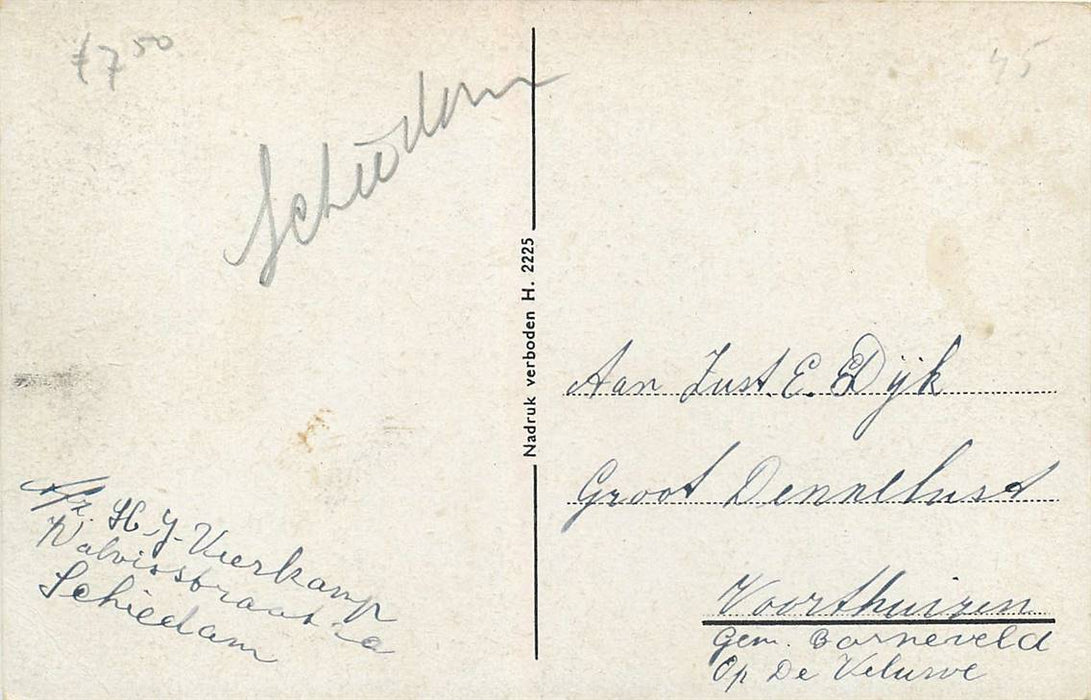 f 7 50
45
Schiedam
Nadruk verboden H. 2225
Aan Zust. E. Dijk
Groot Dennelust
Voorthuizen
Gem. Barneveld
Op De Veluwe
Afz. H. J. Vierkamp
Walvisstraat
Schiedam